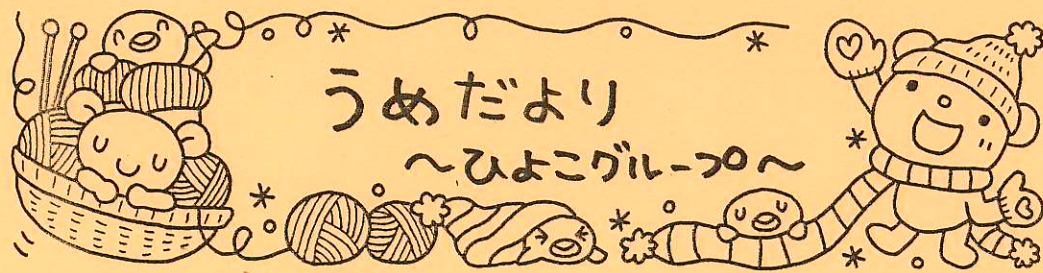 うめだより
～ひよこグループ～